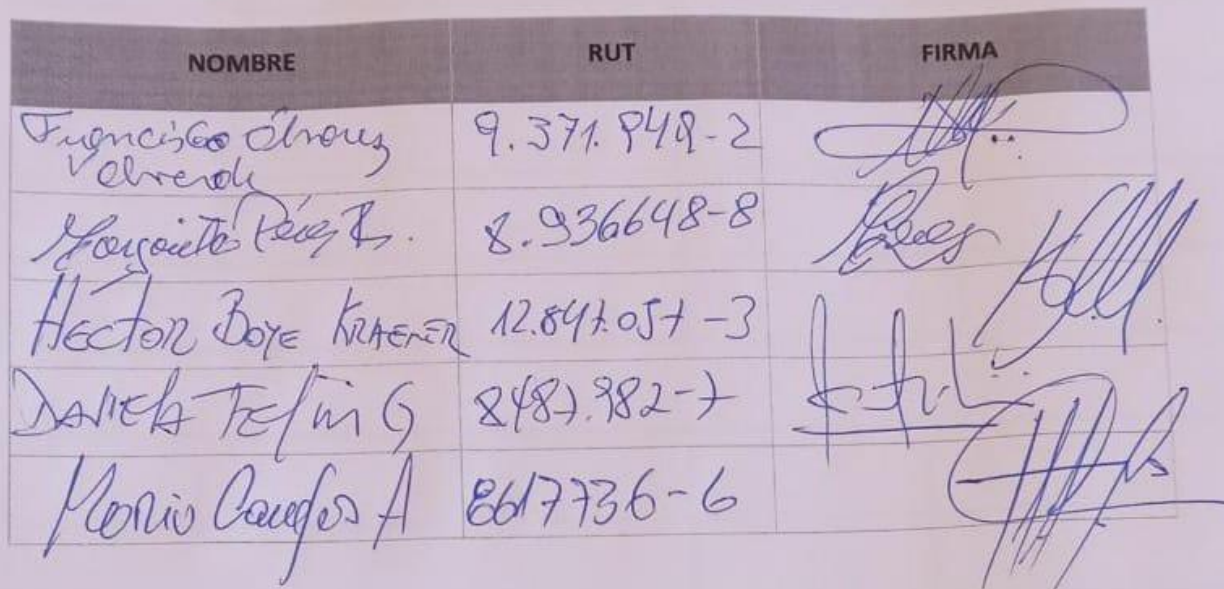 NOMBRE RUT FIRMA
Francisco Álvarez 9.371.949-2
Valverde
Margarita Pérez R. 8.936648-8
HÉCTOR BOYE KRAEMER 12.847.057-3
DANIELA G 8487.982-7
Mario Campos A 8617736-6